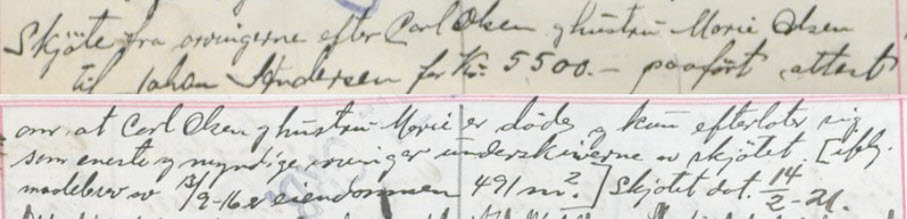 Skjøte fra arvingerne efter Carl Olsen og hustru Marie Olsen
til Johan Andersen for Kr. 5500.- paaført attest
om at Carl Olsen og hustru Marie er døde og kun efterlater sig
som eneste og myndige arvinger underskriverne av skjøtet. [ifølg.
maalebrev av 13/9-16 er eiendommen 491 m². ] Skjøtet dat. 14/2-21.